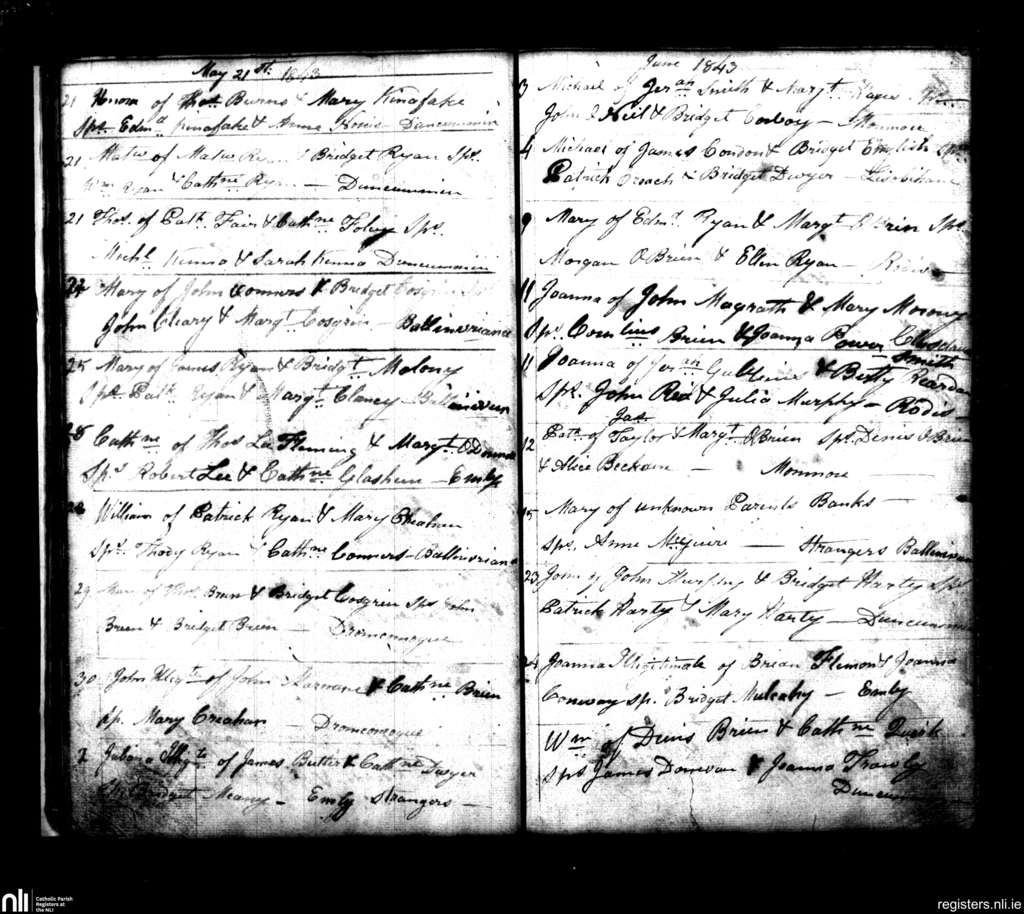 May 21st. 1843
21 Honora of Thos. Burns & Mary Kinafake
Sps. Edmd Kinafake & Anne Duncummin
21 Mathw of Mathw Bridget Ryan Sps.
Wm Ryan & Cathne Ryan — Duncummin
21 Thos. of Patk. Fair & Cathne Foley Sps.
Michl. Kinna & Sarah Kinna Duncummin
Mary of John Conners & Bridget Cosgrin
John Cleary & Margt Cosgrin — Ballinvriana
25 Mary of James Ryan & Bridgt. Molony
Sps. Patk. Ryan & Margt. Clancy
28 Cathne of Thos Lee Fleming & Margt.
Sps Robert Lee & Cathne — Emly
William of Patrick Ryan & Mary Creahan
Sps. Thady Ryan Cathne Conners — Ballinvriana
29 of Thos. Brien & Bridget Cosgrin Sps John
Breen & Bridget Breen — Dromcomogue
30 John Illigte of John & Cathne Brien
Sp. Mary Creahan — Dromcomogue
2 Illigte of James Butler & Cathne Dwyer
Bridget Meany — Emly Strangers —
June 1843
3 Michael of Jerah Smith & Margt. Hayes
John O Neil & Bridget Conboy — Monmore
4 Michael of James Condon & Bridget English Sps
Patrick Roach & Bridget Dwyer —
9 Mary of Edmd. Ryan & Margt O Brien Sps.
Morgan O Brien & Ellen Ryan —
11 Joanna of John Magrath & Mary Morony
Sps. Cornelius Brien & Joanna Power
Smith
11 Joanna of Jerah & Betty Reardon
Sps. John Red & Julia Murphy — Rodus
Jas.
12 Patk. of Taylor & Margt. O Brien Sps. Denis O Brien
& Alice — Monmore
15 Mary of unknown Parents Banks —
Sps. Anne McGuire — Strangers
23 John of John Murphy & Bridget Harty Sps
Patrick Harty & Mary Harty — Duncummin
24 Joanna Illigitimate of Brean Flemon & Joanna
Conway Sp. Bridget Mulcahy — Emly
Wm of Denis Brien & Cathne Quirk
Sps James Donovan & Joanna
Duncummin
nli
Catholic Parish
Registers at
the NLI
registers.nli.ie